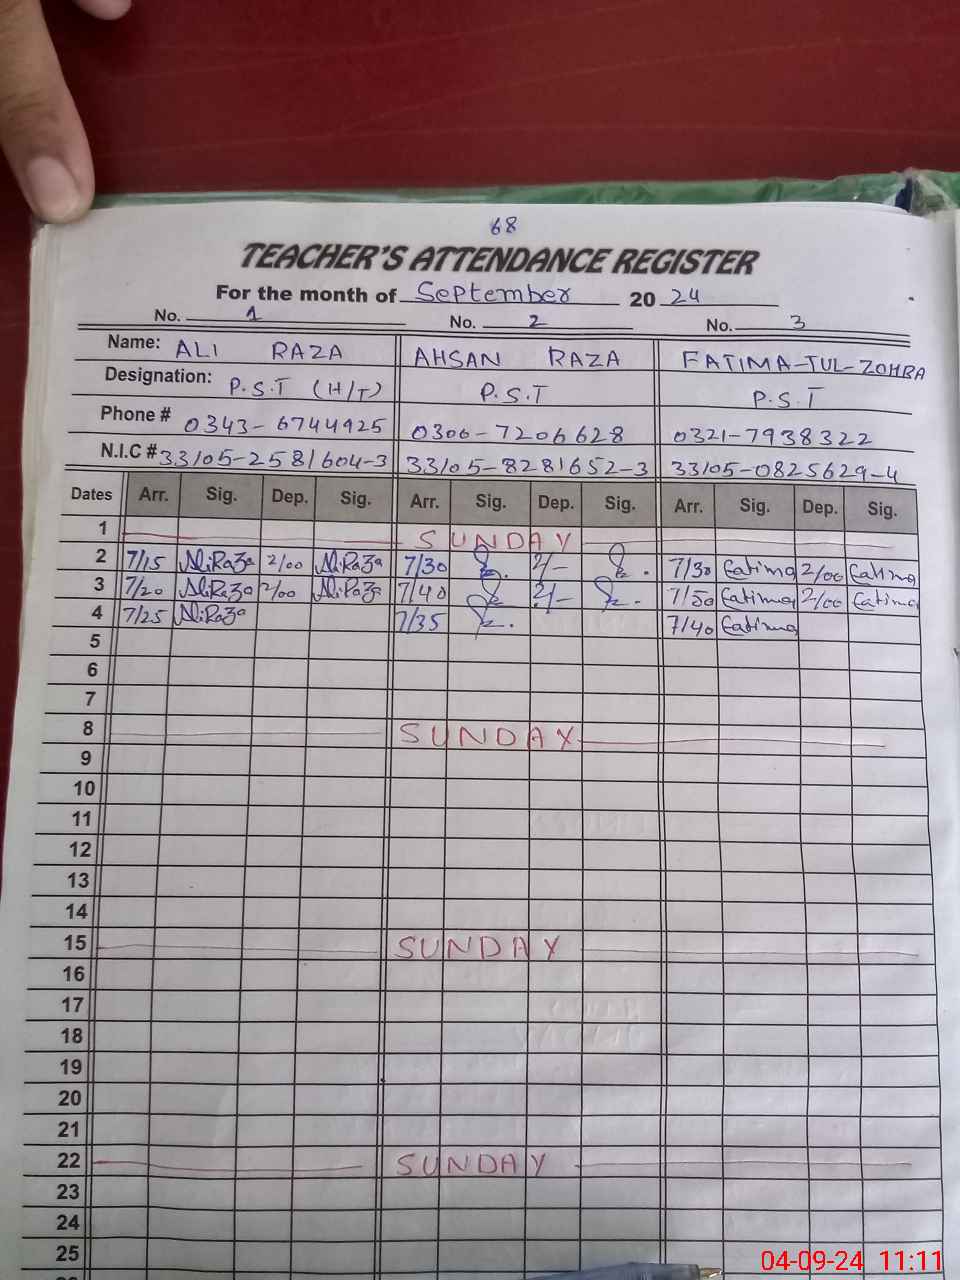 68
TEACHER'S ATTENDANCE REGISTER
For the month of September 2024
No. 1 No. 2 No. 3
Name: ALI RAZA AHSAN RAZA FATIMA-TUL-ZOHRA
Designation: P.S.T (H/T) P.S.T P.S.T
Phone # 0343-6744925 0306-7206628 0321-7938322
N.I.C # 33105-2581604-3 33105-8281652-3 33105-0825629-4
Dates Arr. Sig. Dep. Sig. Arr. Sig. Dep. Sig. Arr. Sig. Dep. Sig.
1 SUNDAY
2 7/15 AliRaza 2/00 AliRaza 7/30 2/- 7/30 Fatima 2/00 Fatima
3 7/20 AliRaza 2/00 AliRaza 7/40 2/- 7/50 Fatima 2/00 Fatima
4 7/25 AliRaza 7/35 7/40 Fatima
5
6
7
8 SUNDAY
9
10
11
12
13
14
15 SUNDAY
16
17
18
19
20
21
22 SUNDAY
23
24
25
04-09-24 11:11